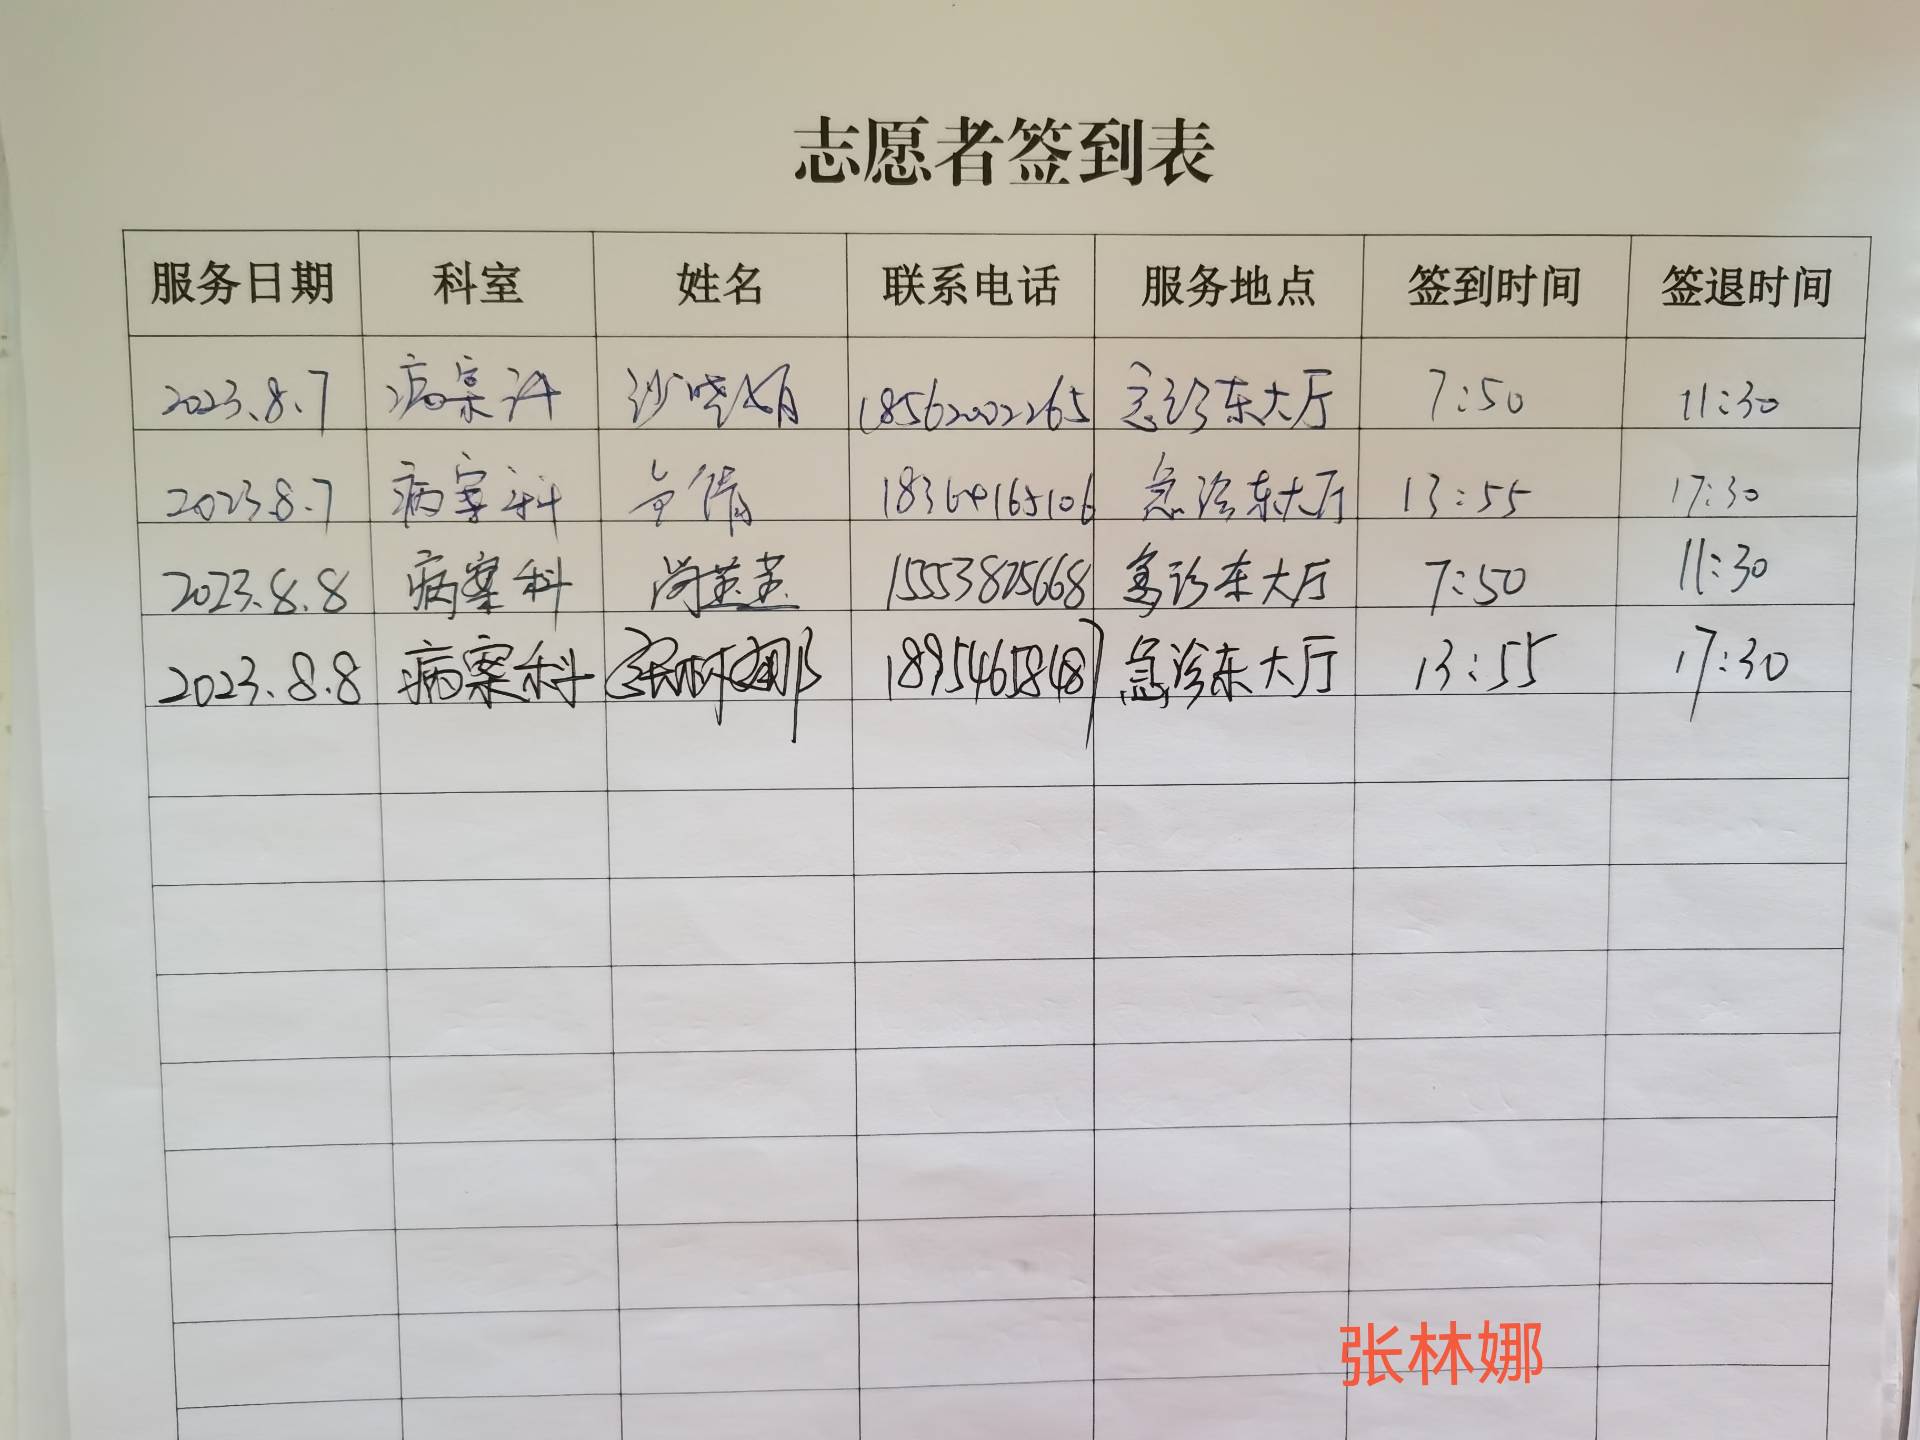 志愿者签到表
服务日期 科室 姓名 联系电话 服务地点 签到时间 签退时间
2023.8.7 病案科 沙晓娟 18562002265 急诊东大厅 7:50 11:30
2023.8.7 病案科 倩 18364165106 急诊东大厅 13:55 17:30
2023.8.8 病案科 尚 15553825668 急诊东大厅 7:50 11:30
2023.8.8 病案科 张林娜 18954658487 急诊东大厅 13:55 17:30
张林娜